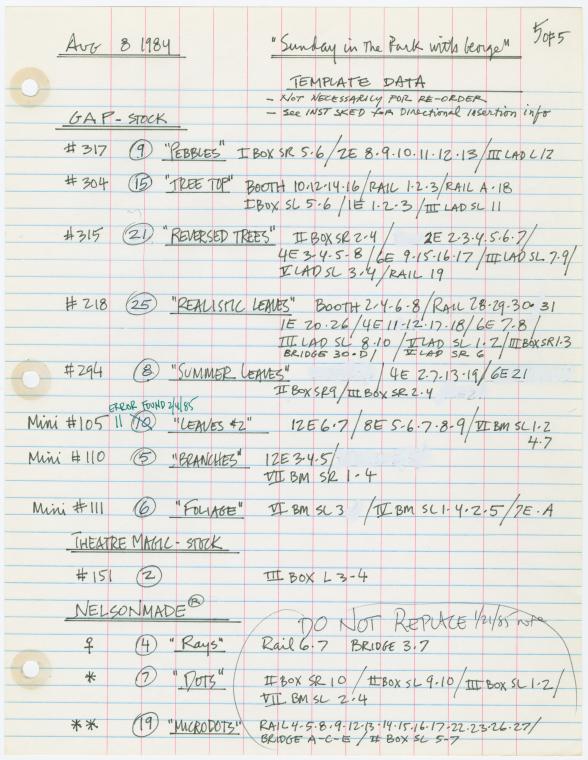 AUG 8 1984 "Sunday in the Park with George" 5 of 5
TEMPLATE DATA
- NOT NECESSARILY FOR RE-ORDER
- see INST SKED for Directional insertion info
GAP - STOCK
#317 9 "PEBBLES" I BOX SR 5·6/2E 8·9·10·11·12·13/III LAD L 12
#304 15 "TREE TOP" BOOTH 10·12·14·16/RAIL 1·2·3/RAIL A·18
I BOX SL 5·6/1E 1·2·3/III LAD SL 11
#315 21 "REVERSED TREES" II BOX SR 2·4/ 2E 2·3·4·5·6·7/
4E 3·4·5·8/6E 9·15·16·17/III LAD SL 7·9/
V LAD SL 3·4/RAIL 19
#218 25 "REALISTIC LEAVES" BOOTH 2·4·6·8/RAIL 28·29·30·31
1E 20·26/4E 11·12·17·18/6E 7·8/
III LAD SL 8·10/V LAD SL 1·2/III BOX SR 1·3
BRIDGE 30·D/V LAD SR 6/
#294 8 "SUMMER LEAVES" 4E 2·7·13·19/6E 21
II BOX SR 9/III BOX SR 2·4
ERROR FOUND 2/4/85
Mini #105 11 10 "LEAVES #2" 12E 6·7/8E 5·6·7·8·9/VI BM SL 1·2
4·7
Mini #110 5 "BRANCHES" 12E 3·4·5/
VII BM SR 1·4
Mini #111 6 "FOLIAGE" VI BM SL 3/IV BM SL 1·4·2·5/7E·A
THEATRE MAGIC - STOCK
#151 2 III BOX L 3-4
NELSONMADE ®
DO NOT REPLACE 1/21/85 note
♀ 4 "Rays" Rail 6·7 BRIDGE 3·7
* 7 "DOTS" II BOX SR 10/II BOX SL 9·10/III BOX SL 1·2/
VII BM SL 2·4
** 19 "MICRODOTS" RAIL 4·5·8·9·12·13·14·15·16·17·22·23·26·27/
BRIDGE A-C-E/II BOX SL 5-7